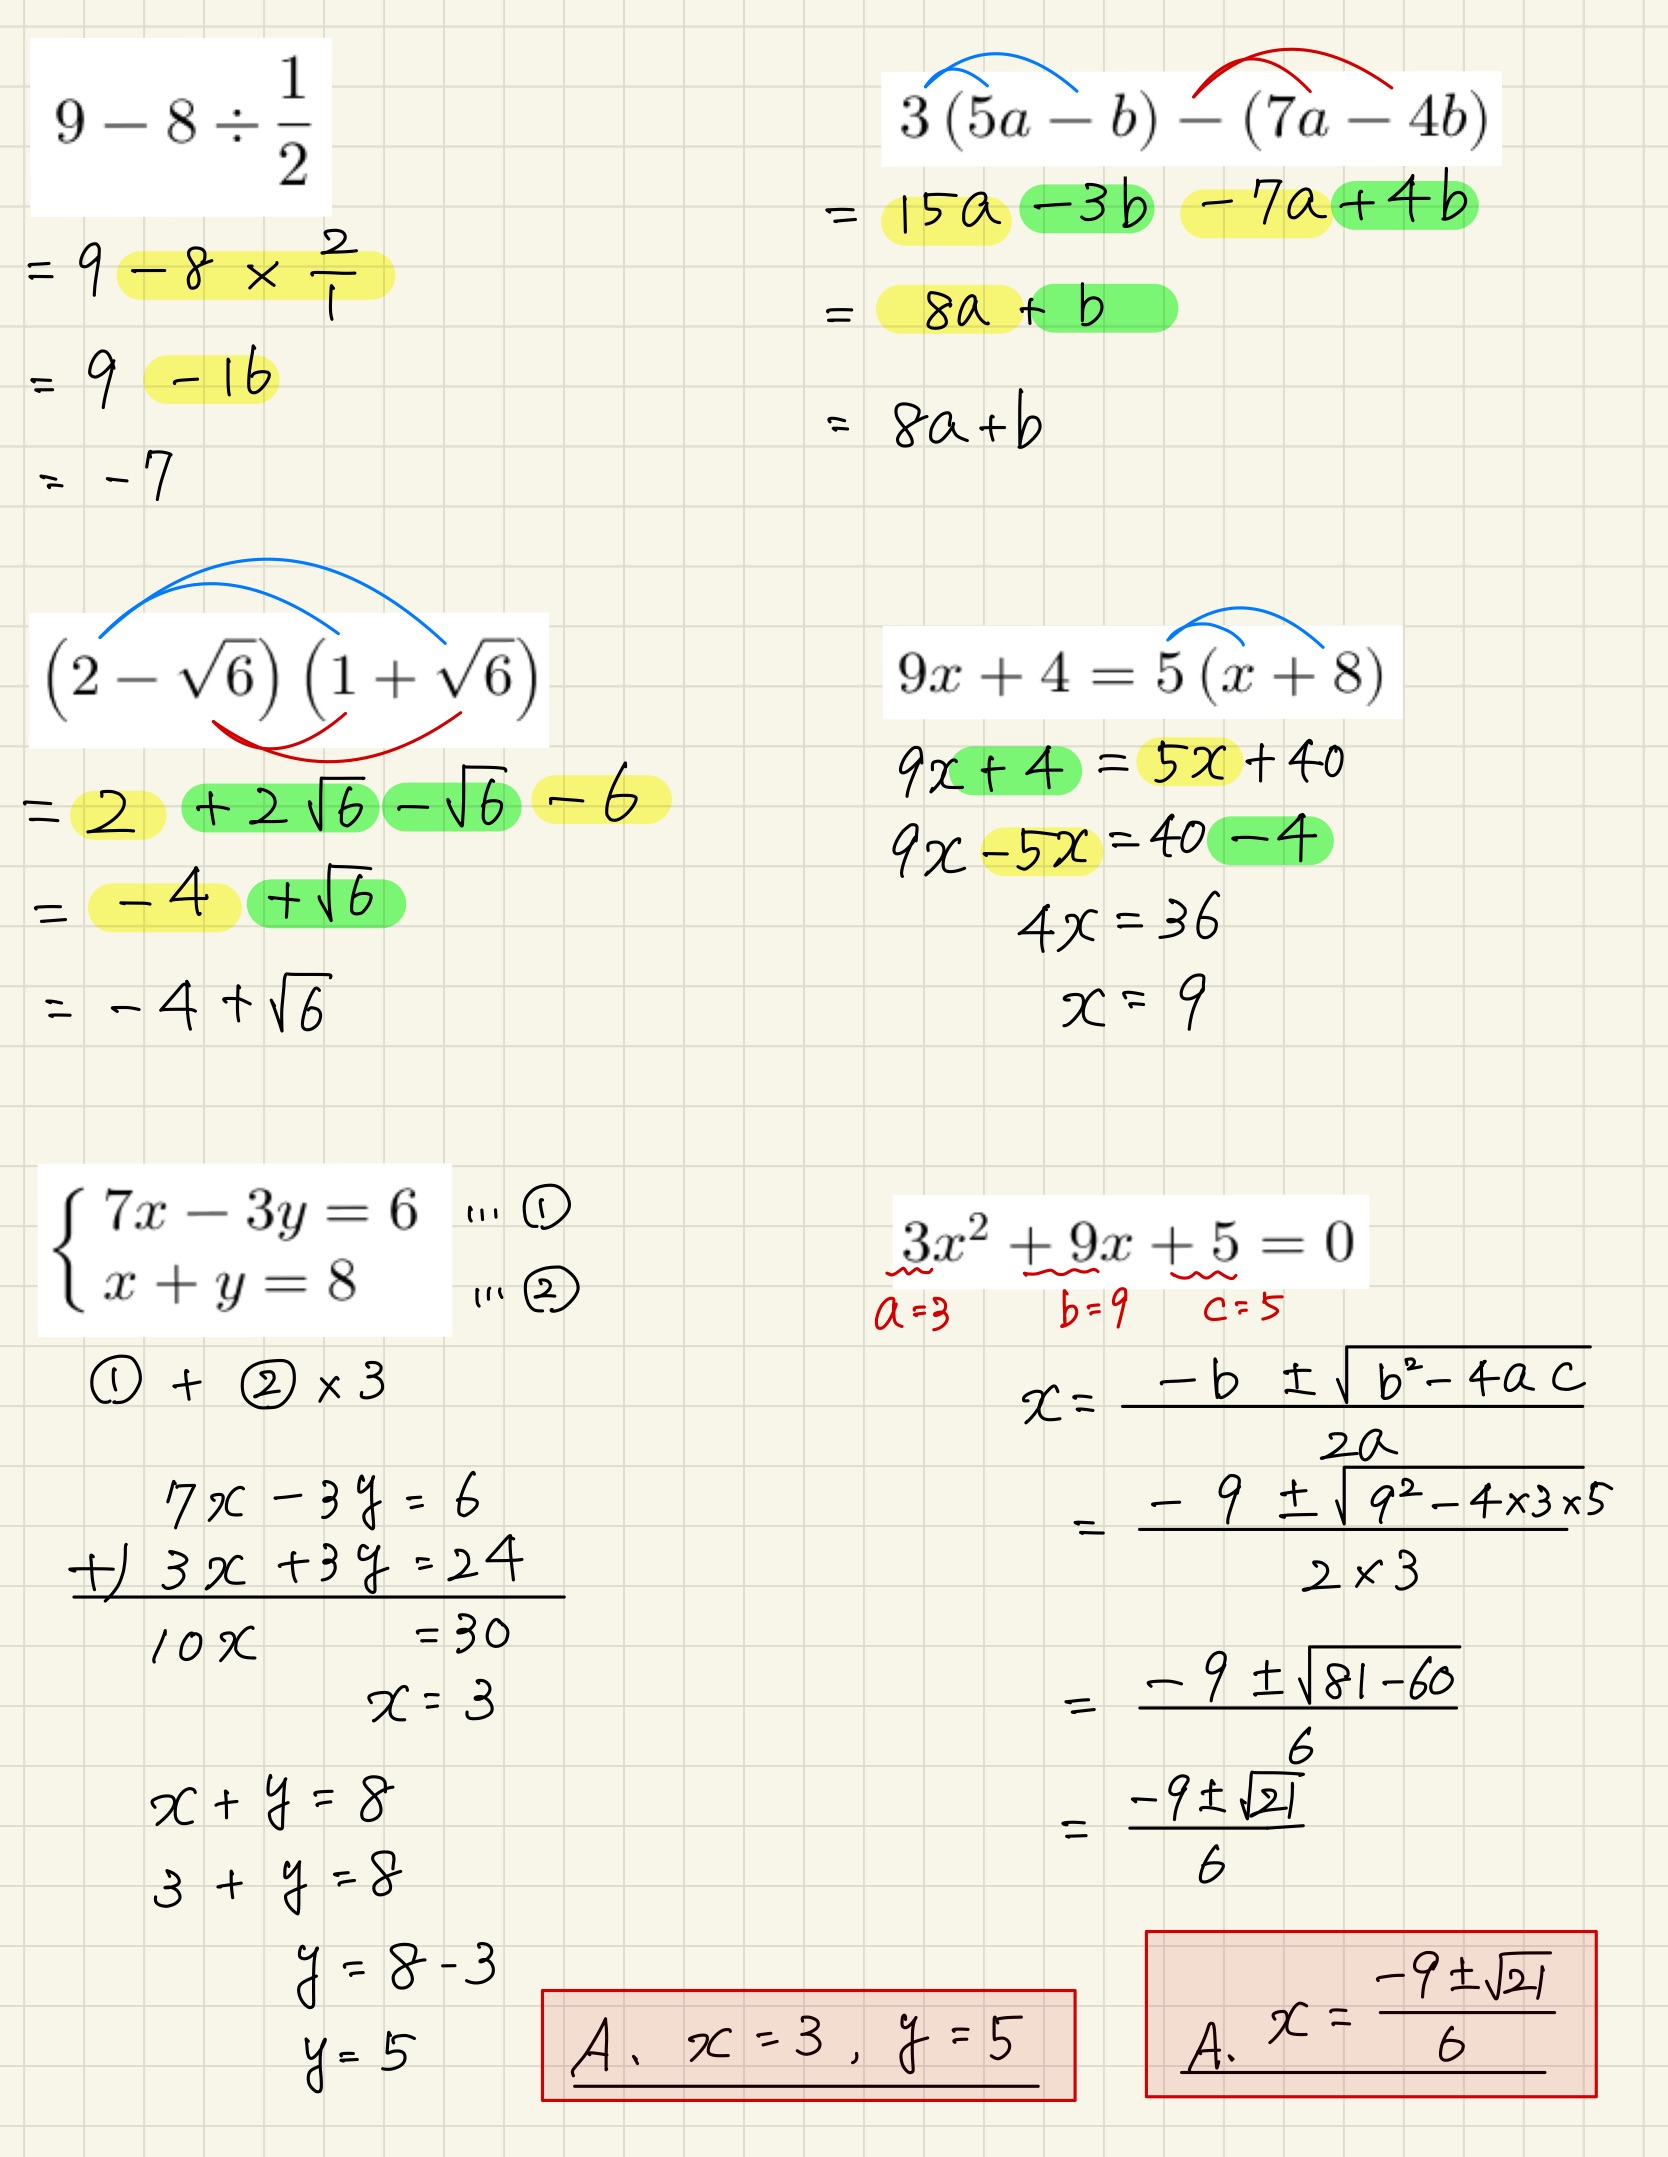 9 − 8 ÷ 1/2
= 9 − 8 × 2/1
= 9 − 16
= −7
3(5a − b) − (7a − 4b)
= 15a −3b −7a +4b
= 8a + b
= 8a+b
(2 − √6)(1 + √6)
= 2 +2√6 −√6 −6
= −4 +√6
= −4+√6
9x + 4 = 5(x + 8)
9x + 4 = 5x + 40
9x −5x = 40 −4
4x = 36
x = 9
{ 7x − 3y = 6 … ①
x + y = 8 … ②
① + ② × 3
7x − 3y = 6
+) 3x + 3y = 24
10x = 30
x = 3
x + y = 8
3 + y = 8
y = 8 − 3
y = 5
A. x = 3, y = 5
3x² + 9x + 5 = 0
a=3 b=9 c=5
x = (−b ± √(b²−4ac))/(2a)
= (−9 ± √(9²−4×3×5))/(2×3)
= (−9 ± √(81−60))/6
= (−9 ± √21)/6
A. x = (−9 ± √21)/6